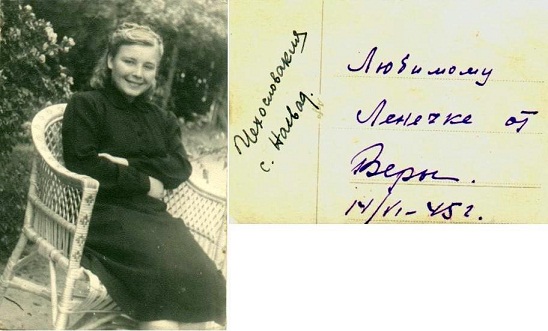 Чехословакия
с. Насвад.
Любимому
Ленечке от
Веры.
14/VI-45г.